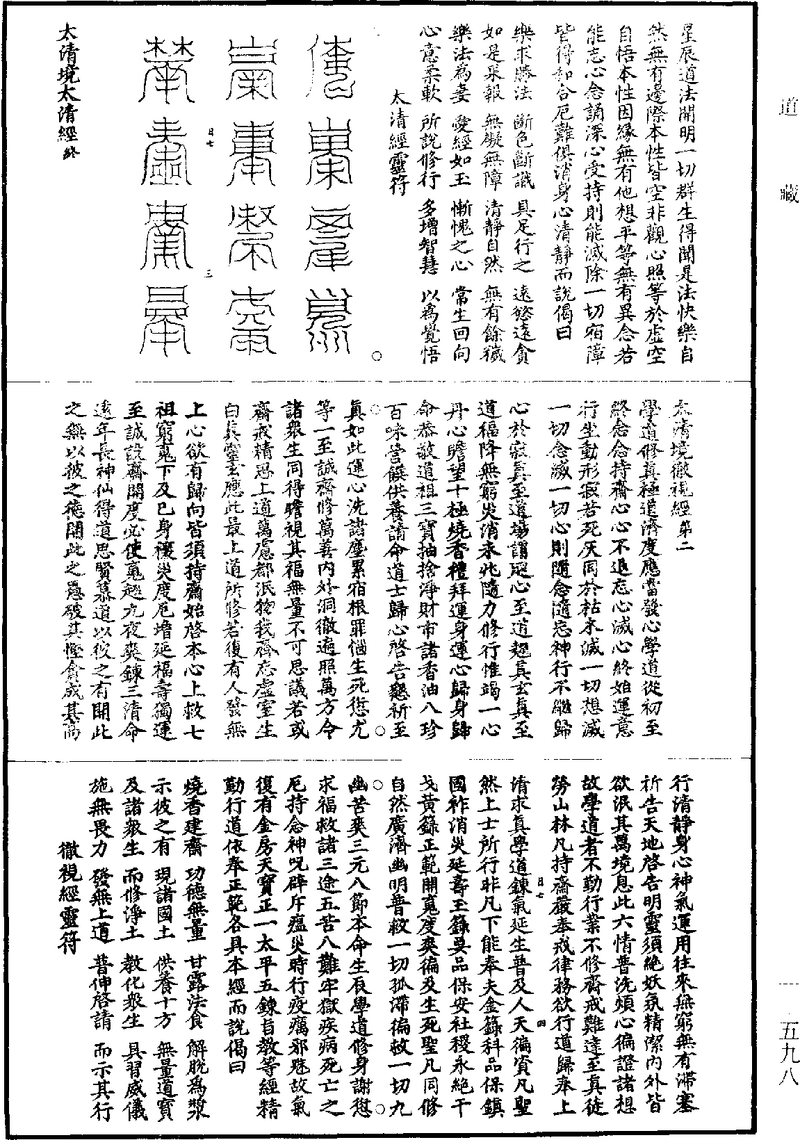 道藏
五九八
星辰道法開明一切群生得聞是法快樂自
然無有邊際本性皆空非觀心照等於虛空
自悟本性因緣無有他想平等無有異念若
能志心念誦深心受持則能滅除一切宿障
皆得和合厄難俱消身心清靜而說偈曰
樂求勝法　斷色斷識　具足行之　遠慾遠貪
如是果報　無礙無障　清靜自然　無有餘穢
樂法為妻　愛經如玉　慚愧之心　常生回向
心意柔軟　所說修行　多增智慧　以為覺悟
太清經靈符
日七
三
太清境太清經終
太清境徹視經第二
學道修真極道濟度應當發心學道從初至
終念念持齋心心不退忘心滅心終始運意
行坐動形寂若死灰同於枯木滅一切想滅
一切念滅一切心則隨念隨忘神行不離歸
心於寂真至道場謂聖心至道超真玄真至
道福降無窮災消未兆隨力修行惟竭一心
丹心瞻望十極燒香禮拜運身運心歸身歸
命恭敬道祖三寶抽捨淨財市諸香油八珍
百味營饌供養請命道士歸心啓告懇祈至
真如此運心洗諸塵累宿根罪惱生死愆尤
等一至誠齋修萬善內外洞徹遍照萬方令
諸眾生同得瞻視其福無量不可思議若或
齋戒精思上道萬慮都泯物我齊忘虛室生
白真靈玄應此最上道所修若復有人發無
上心欲有歸向皆須持齋始啓本心上救七
祖窮魂下及己身禳災度厄增延福壽獨運
至誠設齋開度必使魂超九夜爽鍊三清命
遠年長神仙得道思賢慕道以彼之有開此
之無以彼之德開此之愚破其慳貪成其高
行清靜身心神氣運用往來無窮無有滯塞
祈告天地啓告明靈須絕妖氛精潔內外皆
欲泯其萬境息此六情普洗煩心徧證諸想
故學道者不勤行業不修齋戒難達至真徒
勞山林凡持齋嚴奉戒律務欲行道歸奉上
清求真學道鍊氣延生普及人天徧資凡聖
日七
四
然上士所行非凡下能奉夫金籙科品保鎮
國祚消災延壽玉籙要品保安社稷永絕干
戈黃籙正範開魂度爽徧及生死聖凡同修
自然廣濟幽明普救一切孤滯徧救一切九
幽苦爽三元八節本命生辰學道修身謝愆
求福救諸三途五苦八難牢獄疾病死亡之
厄持念神呪辟斥瘟災時行疫癘邪魅故氣
復有金房天寶正一太平五鍊旨教等經精
勤行道依奉正範各具本經而說偈曰
燒香建齋　功德無量　甘露法食　解脫為漿
示彼之有　現諸國土　供養十方　無量道寶
及諸眾生　而修淨土　教化眾生　具習威儀
施無畏力　發無上道　普伸啓請　而示其行
徹視經靈符